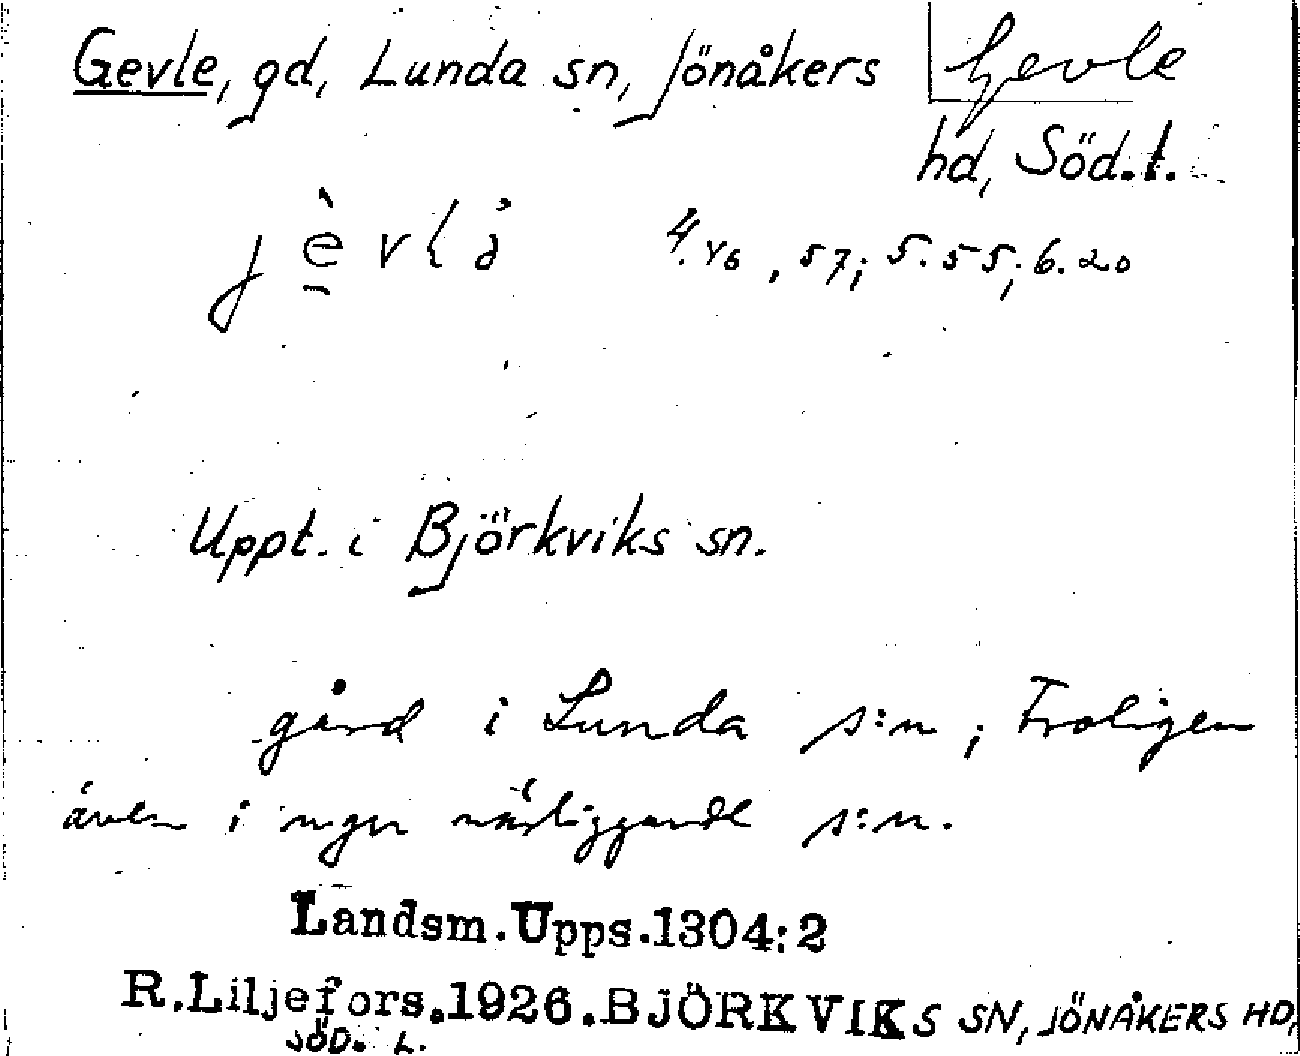 Gevle, gd, Lunda sn, Jönåkers
Gevle
hd, Söd.l.
4.46, 57; 5.55; 6.20
Uppt. i Björkviks sn.
gård i Lunda s:n; Troligen
även i ngn närliggande s:n.
Landsm.Upps.1304:2
R.Liljefors.1926.BJÖRKVIKS SN, JÖNÅKERS HD,
SÖD. L.